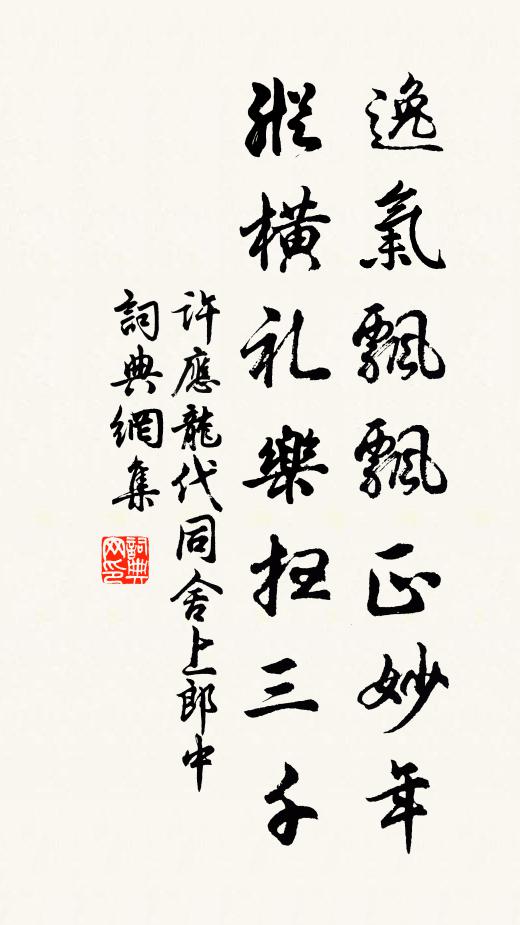 逸氣飄飄正妙年
縱橫礼樂抂三千
許應龍代同舍上郎中
詞典網集
詞典网印